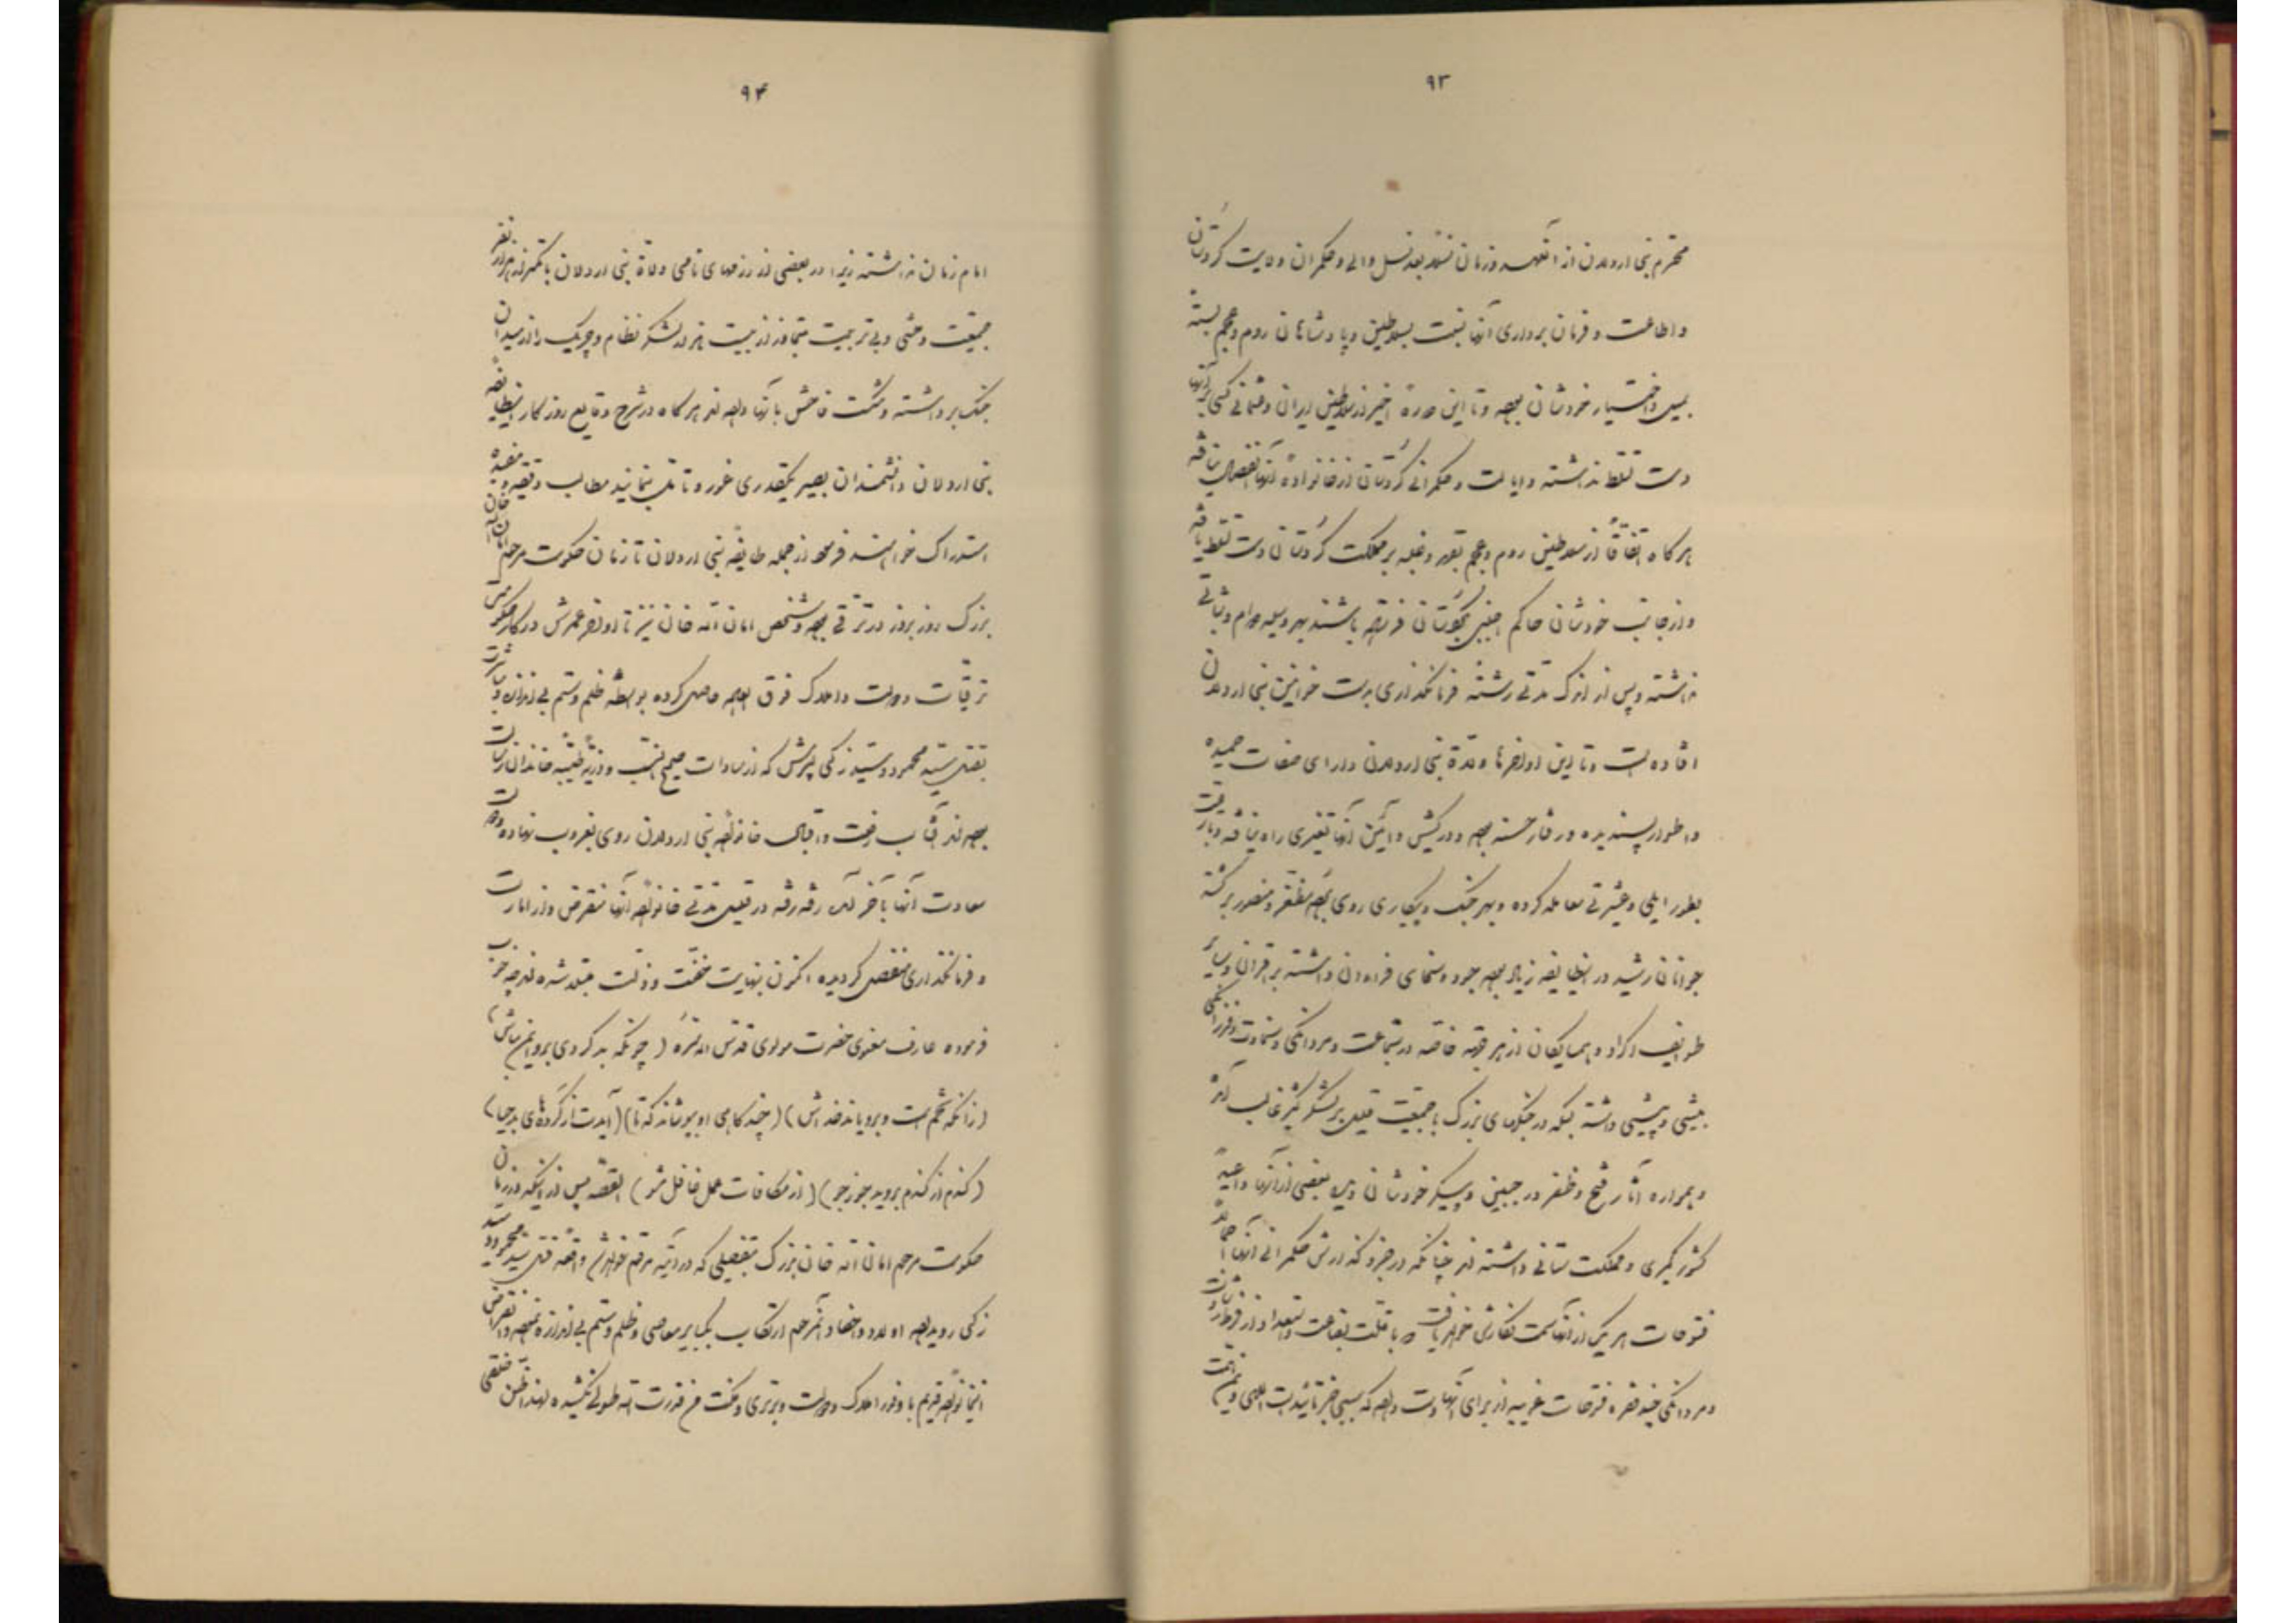 ۹۳
محترم بنی اردلان از آنعهد و زمان نسلا بعد نسل والی و حکمران ولایت کردستان
و اطاعت و فرمان برداری آنها نسبت بسلاطین و پادشاهان روم و عجم بسته
بمیل و اختیار خودشان بوده و تا این دوره اخیر از سلاطین ایران و عثمانی کسی بر آنها
دست تسلط نداشته و ایالت و حکمرانی کردستان از خانواده آنها انفصال نیافته
هر کاه اتفاقاً از سلاطین روم و عجم بقهر و غلبه بر مملکت کردستان دست تسلط یافته
و از جانب خودشان حاکم اجنبی بکردستان فرستاده باشند بهر وسیله دوام و ثباتی
نداشته و پس از اندک مدتی رشته فرمانگذاری بدست خوانین بنی اردلان
افتاده است و تا این اواخرها ولاة بنی اردلان دارای صفات حمیده
و اطوار پسندیده و رفتار حسنه بوده و در کیش و آئین آنها تغییری راه نیافته و با رعیت
بطور ایلی و عشیرتی معامله کرده و بهر جنک و پیکاری روی نهاده مظفر و منصور برکشته
جوانان رشید در اینطایفه زیاد بوده جود و سخای فراوان داشته بر اقران و سایر
طوایف اکراد و همسایکان از هر جهة خاصه در شجاعت و مردانکی و سخاوت و فرزانکی
بیشی و پیشی داشته بلکه در جنکهای بزرک با جمعیت قلیل بر لشکر کثیر غالب آمده
و همواره آثار فتح و ظفر در جبین و پیکر خودشان دیده بعضی از آنها داعیهٔ
کشور کیری و مملکت ستانی داشته اند چنانکه در جزو کذارش حکمرانی آنها اجمالا
فتوحات هر یک از آنها سمت نکارش خواهد یافت و با قلت بضاعت و استعداد از فرط رشادت
و مردانکی چند فقره فتوحات غریبه از برای آنها دست داده که سببی جز تأییدات الهی و یمن همت
۹۴
امام زمان نداشته زیرا در بعضی از رزمهای نامی ولاة بنی اردلان با کمتر از هزار نفر
جمعیت وحشی و بی تربیت متجاوز از بیست هزار لشکر نظام و چریک را از میدان
جنک برداشته و شکست فاحش بآنها داده اند هر کاه در شرح وقایع روزکار اینطایفه
بنی اردلان دانشمندان بصیر یکقدری غور و تأمل نمایند مطالب دقیقه و مفیده
استدراک خواهند فرمود از جمله طایفه بنی اردلان تا زمان حکومت مرحوم امان الله خان
بزرک روز بروز در ترقی بوده و شخص امان الله خان نیز تا اواخر عمرش در کار حکومت
ترقیات دولت و املاک فوق العاده حاصل کرده بواسطه ظلم و ستم بی اندازه و مباشرت
بقتل سید محمود و سید زکی پسرش که از سادات صحیح النسب و ذریه طیبه خاندان رسالت
بوده اند آفتاب رفعت و اقبال خانواده بنی اردلان روی بغروب نهاده و دولت
سعادت آنها بآخر آمد رفته رفته در قلیل مدتی خانواده آنها منقرض و از امارت
و فرمانگذاری منفصل کردیده اکنون بنهایت خفت و ذلت مبتلا شده اند چه خوب
فرموده عارف معنوی حضرت مولوی قدس الله سره (چونکه بد کردی برو ایمن مباش)
(زانکه تخم است و برویاند خداش) (چند کاهی او بپوشاند که تا) (آیدت از کرده های بد حیا)
(کندم از کندم بروید جو ز جو) (از مکافات عمل غافل مشو) القصه پس از اینکه در زمان
حکومت مرحوم امان الله خان بزرک بتفصیلی که در آتیه مرقوم خواهد شد واقعه قتل سید محمود و سید
زکی رویداده اولاد و احفاد آنمرحوم ارتکاب بکبایر معاصی و ظلم و ستم بی اندازه نموده و انقراض
اینخانواده قدیم با وفور املاک و دولت و برتری و مکنت من قدرت الله طولی نکشیده لهذا ظن خلقی